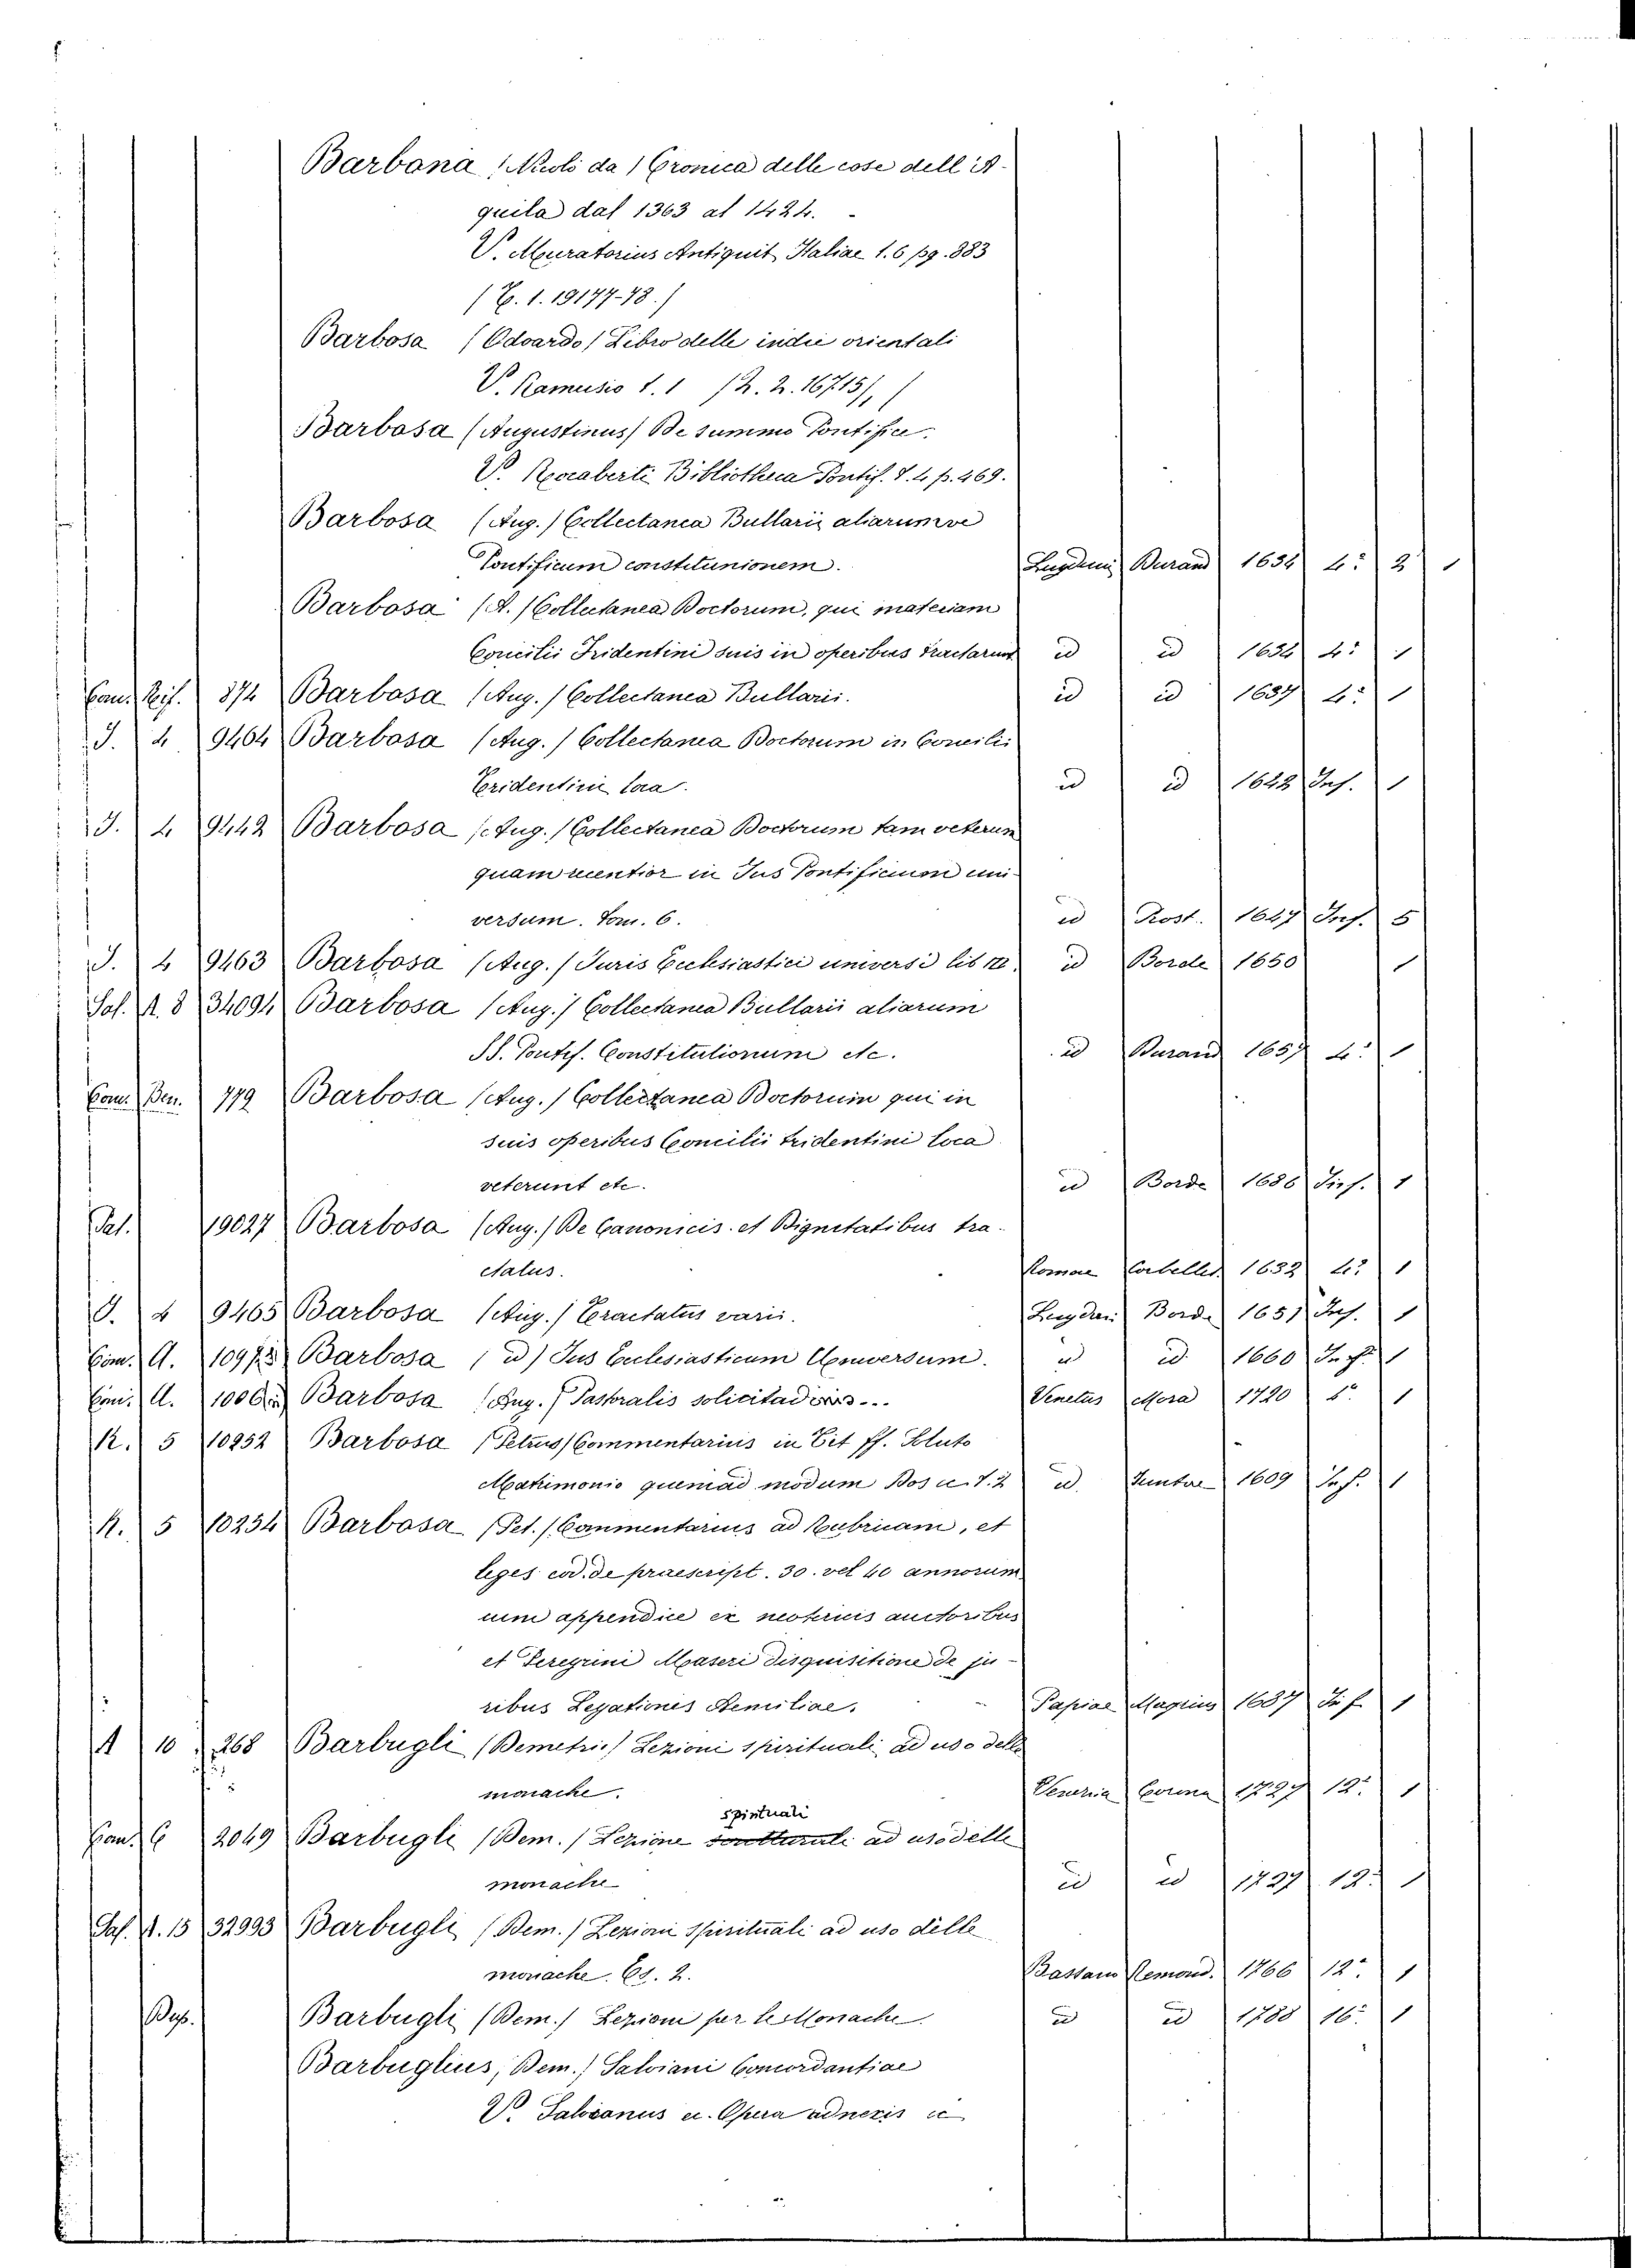 Barbona (Nicolò da) Cronica delle cose dell' A-
quila dal 1363 al 1424. -
V. Muratorius Antiquit. Italiae t. 6 pg. 883
(E. 1. 19177-78.)
Barbosa (Odoardo) Libro delle indie orientali
V. Ramusio t. 1 (2. 2. 16715), (
Barbosa (Augustinus) De summo Pontifice.
V. Rocaberti Bibliotheca Pontif. T. 4 p. 469.
Barbosa (Aug.) Collectanea Bullarii aliarumve
Pontificum constitunionem. Lugduni Durand 1634 4:° 2 1
Barbosa (A.) Collectanea Doctorum, qui materiam
Concilii Tridentini suis in operibus tractarunt id id 1634 4:° 1
Can. Reif. 874 Barbosa (Aug.) Collectanea Bullarii. id id 1637 4:° 1
J. 4 9464 Barbosa (Aug.) Collectanea Doctorum in Concilii
Tridentini loca. id id 1642 Inf. 1
J. 4 9442 Barbosa (Aug.) Collectanea Doctorum tam veterum
quam recentior in Jus Pontificium uni-
versum. Tom. 6. id Prost. 1647 Inf. 5
J. 4 9463 Barbosa (Aug.) Juris Ecclesiastici universi lib. id Borde 1650 1
Sof. A. 8 34094 Barbosa (Aug.) Collectanea Bullarii aliarum
SS. Pontif. Constitutionum etc. id Durand 1657 4:° 1
Com. Ben. 779 Barbosa (Aug.) Collectanea Doctorum qui in
suis operibus Concilii tridentini loca
veterunt etc. id Borde 1686 Inf. 1
Pal. 19027 Barbosa (Aug.) De Canonicis et Dignitatibus tra-
ctatus. Romae Corbelled. 1632 4:° 1
J. 4 9465 Barbosa (Aug.) Tractatus varii. Lugduni Borde 1651 Inf. 1
Com. A. 10973 Barbosa (id) Jus Ecclesiasticum Universum. id id 1660 Inf. 1
Com. A. Barbosa (Aug.) Pastoralis solicitadinis... Venetus Mora 1720 4° 1
R. 5 10252 Barbosa (Petrus) Commentarius in Tit ff. Soluto
Matrimonio quemad modum Dos u. T. 2 id. Juntae 1609 Inf. 1
R. 5 10254 Barbosa (Pet.) Commentarius ad Rubricam, et
leges cod. de praescript. 30. vel 40 annorum
cum appendice ex neotericis auctoribus
et Peregrini Maseri disquisitione de ju-
ribus Legationis Aemiliae. Papiae Magrius 1687 Inf. 1
A 10 268 Barbugli (Demetrio) Lezioni spirituali ad uso delle
monache. Venezia Corona 1727 12:° 1
Can. C 2049 Barbugli (Dem.) Lezione spirituali ad uso delle
monache id id 1727 12:° 1
Sof. A. 15 32993 Barbugli (Dem.) Lezioni spirituali ad uso delle
monache. Ed. 2. Bassano Remond. 1766 12° 1
Dep. Barbugli (Dem.) Lezioni per le Monache. id id 1788 16° 1
Barbuglius, Dem.) Salviani Concordantiae
V. Salvianus u. Opera adnexis